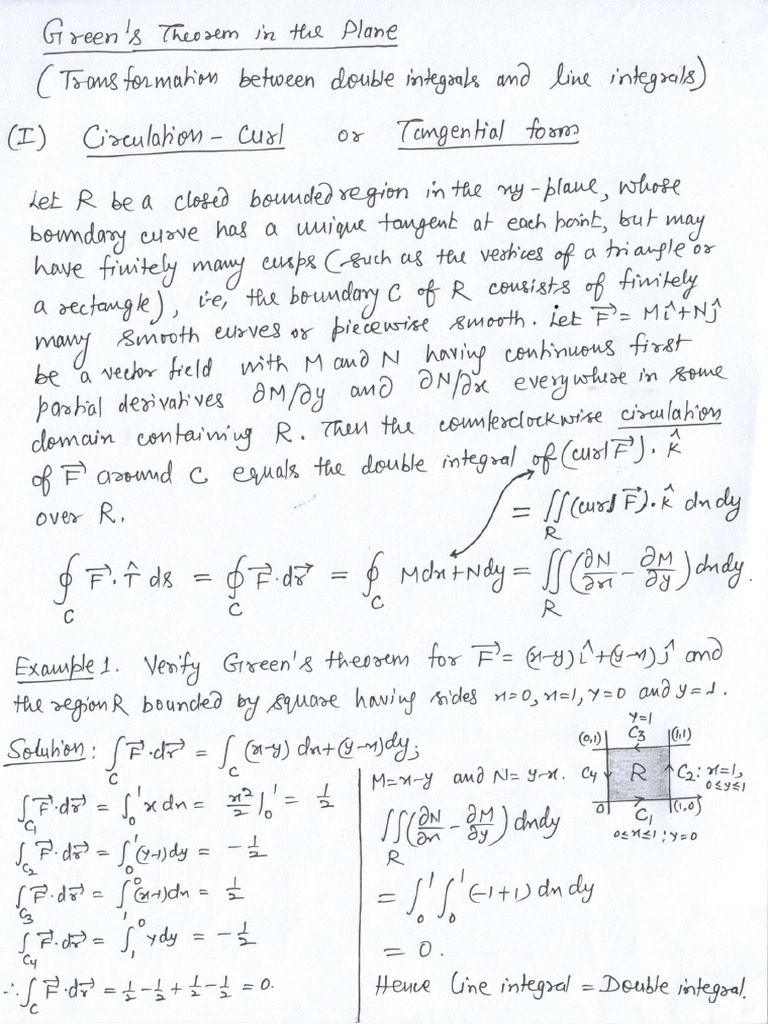 Green's Theorem in the Plane
(Transformation between double integrals and line integrals)
(I) Circulation - Curl or Tangential form
Let R be a closed bounded region in the xy-plane, whose
boundary curve has a unique tangent at each point, but may
have finitely many cusps (such as the vertices of a triangle or
a rectangle), i.e, the boundary C of R consists of finitely
many smooth curves or piecewise smooth. Let F⃗ = Mî+Nĵ
be a vector field with M and N having continuous first
partial derivatives ∂M/∂y and ∂N/∂x everywhere in some
domain containing R. Then the counterclockwise circulation
of F⃗ around C equals the double integral of (curl F⃗)·k̂
over R.
= ∬_R (curl F⃗)·k̂ dxdy
∮_C F⃗·T̂ ds = ∮_C F⃗·dr⃗ = ∮_C Mdx+Ndy = ∬_R (∂N/∂x - ∂M/∂y) dxdy.
Example 1. Verify Green's theorem for F⃗ = (x-y)î+(y-x)ĵ and
the region R bounded by square having sides x=0, x=1, y=0 and y=1.
Solution: ∫_C F⃗·dr⃗ = ∫_C (x-y) dx+(y-x)dy;
∫_C1 F⃗·dr⃗ = ∫_0^1 x dx = x²/2 |_0^1 = 1/2
∫_C2 F⃗·dr⃗ = ∫_0^1 (y-1)dy = -1/2
∫_C3 F⃗·dr⃗ = ∫_1^0 (x-1)dx = 1/2
∫_C4 F⃗·dr⃗ = ∫_1^0 ydy = -1/2
∴ ∫_C F⃗·dr⃗ = 1/2 - 1/2 + 1/2 - 1/2 = 0.
M=x-y and N=y-x.
∬_R (∂N/∂x - ∂M/∂y) dxdy
= ∫_0^1 ∫_0^1 (-1+1) dxdy
= 0.
Hence Line integral = Double integral.
y=1
(0,1) C3 (1,1)
C4 R C2: x=1,
0≤y≤1
0 C1 (1,0)
0≤x≤1; y=0